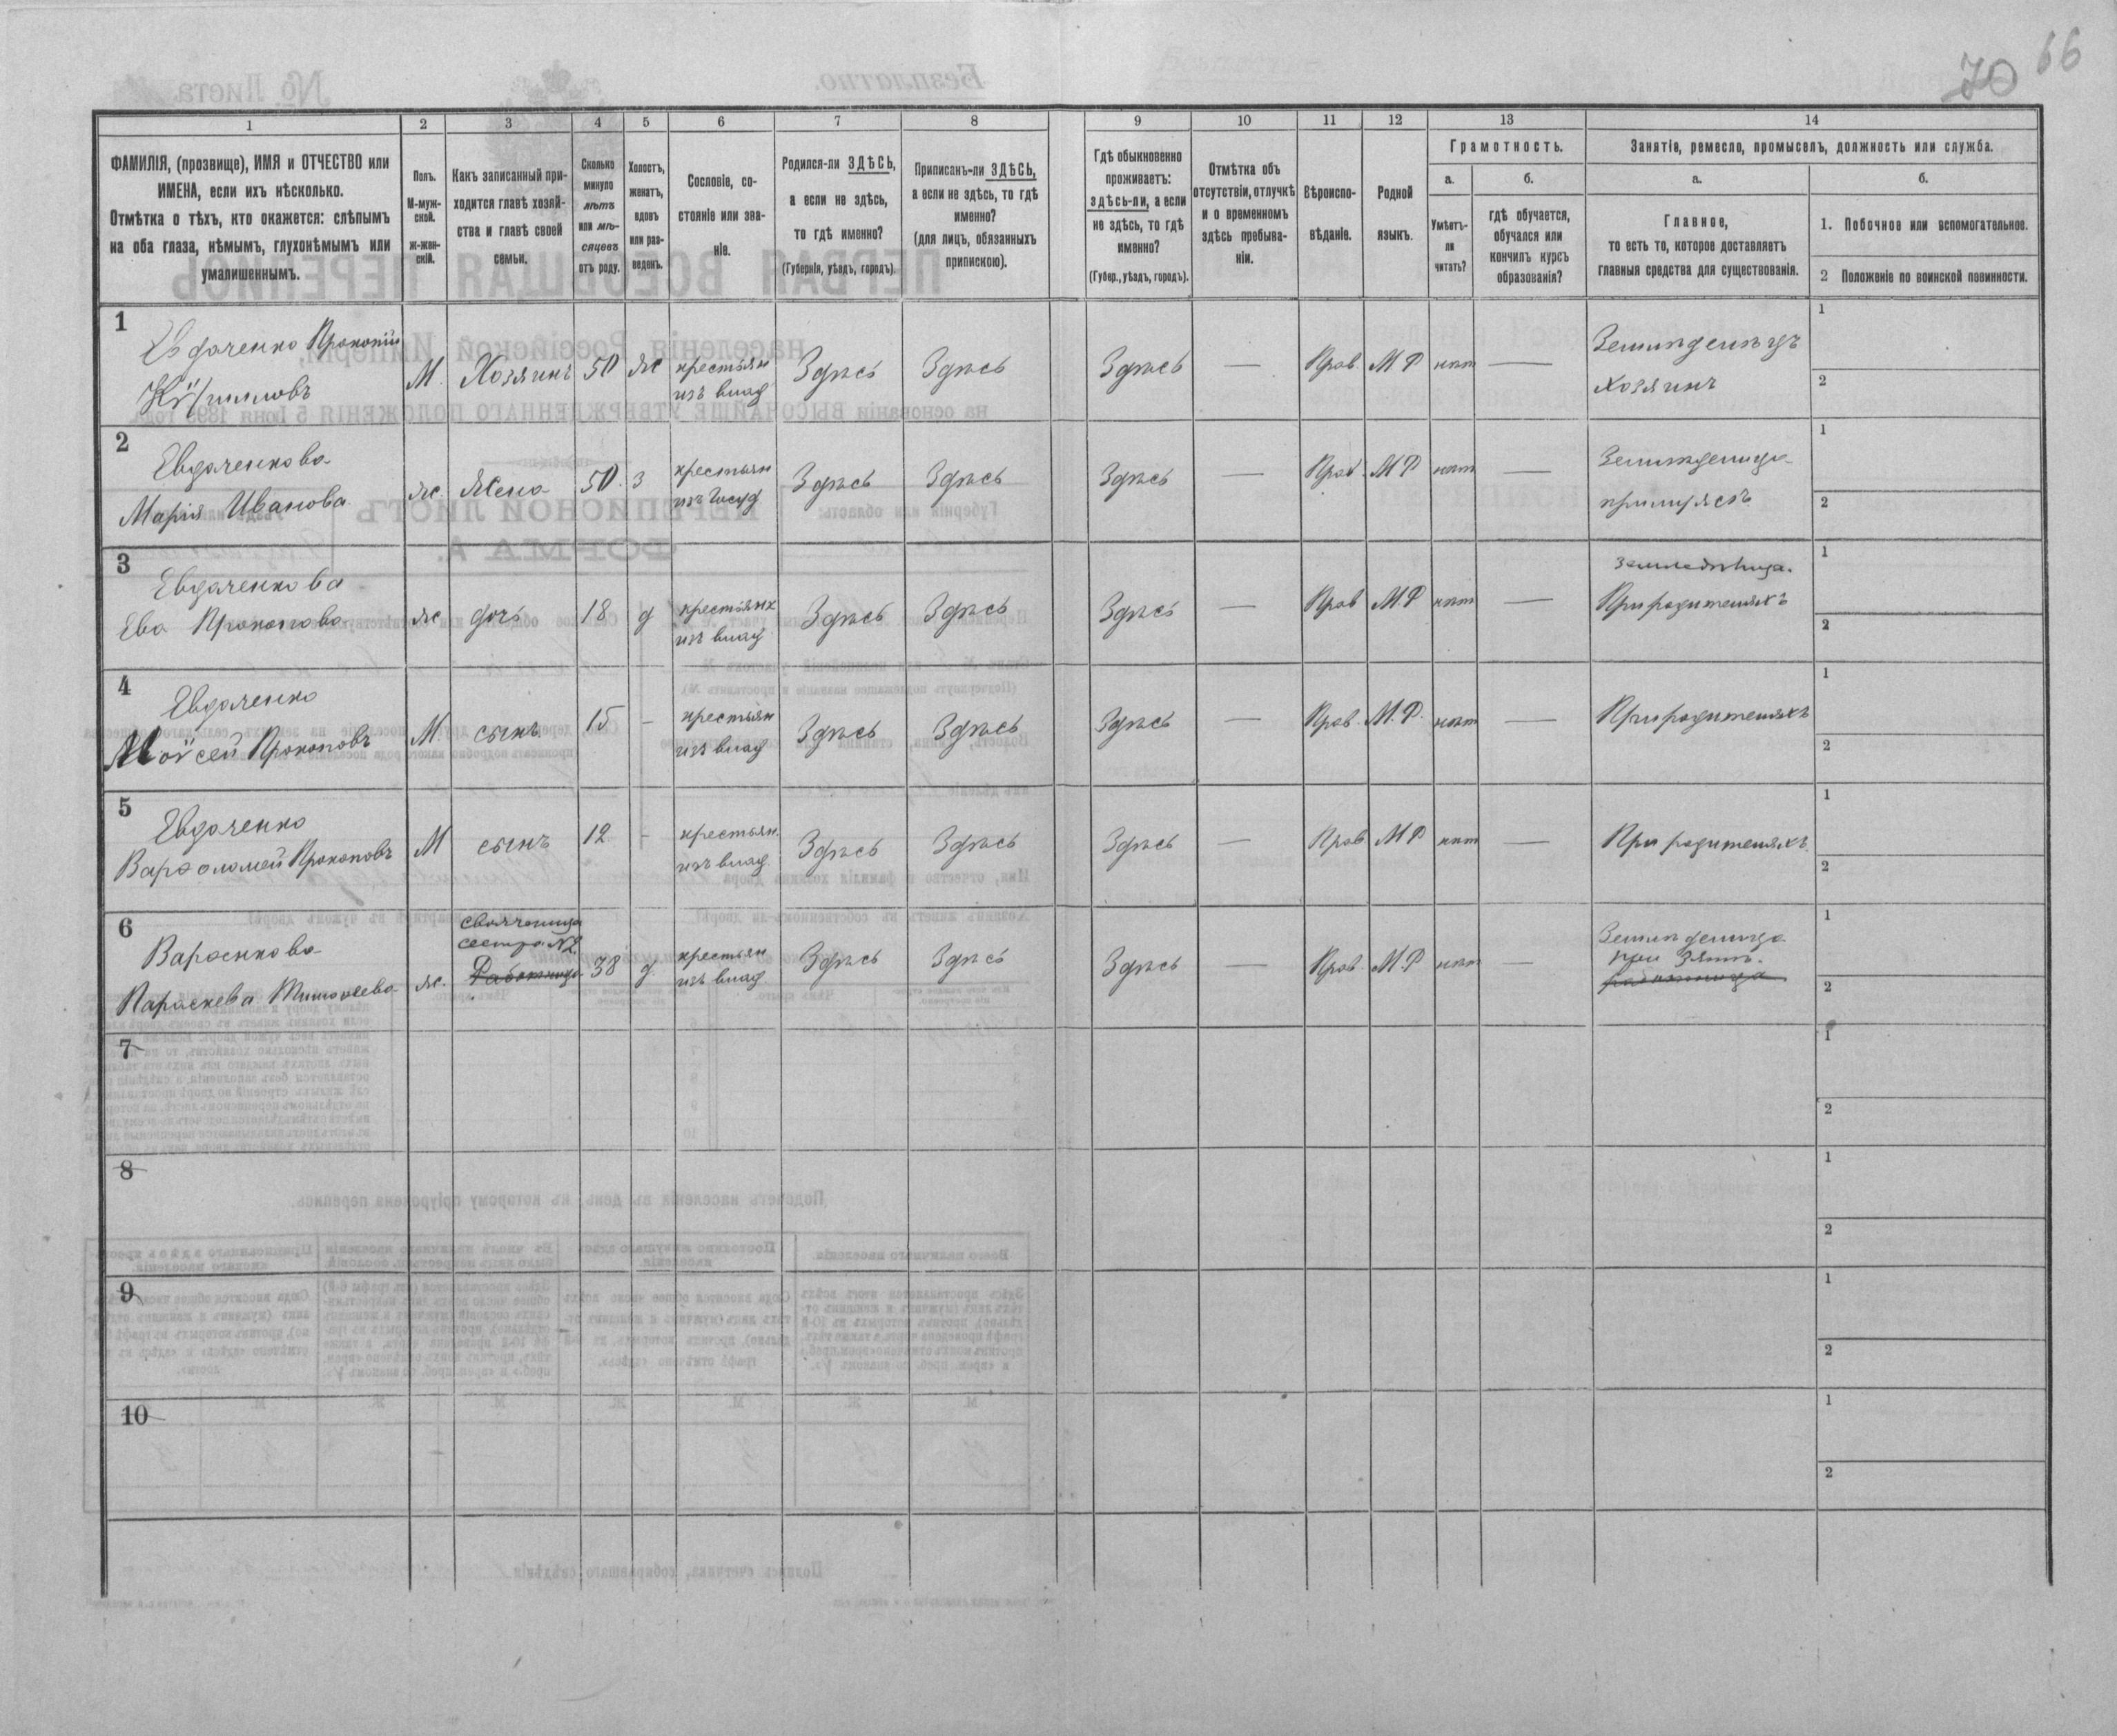 66
70
1
2
3
4
5
6
7
8
9
10
11
12
13
14
ФАМИЛІЯ, (прозвище), ИМЯ и ОТЧЕСТВО или
ИМЕНА, если ихъ нѣсколько.
Отмѣтка о тѣхъ, кто окажется: слѣпымъ
на оба глаза, нѣмымъ, глухонѣмымъ или
умалишеннымъ.
Полъ.
М-муж-
ской.
ж-жен-
скій.
Какъ записанный при-
ходится главѣ хозяй-
ства и главѣ своей
семьи.
Сколько
минуло
лѣтъ
или мѣ-
сяцевъ
отъ роду.
Холостъ,
женатъ,
вдовъ
или раз-
веденъ.
Сословіе, со-
стояніе или зва-
ніе.
Родился-ли ЗДѢСЬ,
а если не здѣсь,
то гдѣ именно?
(Губернія, уѣздъ, городъ).
Приписанъ-ли ЗДѢСЬ,
а если не здѣсь, то гдѣ
именно?
(для лицъ, обязанныхъ
припискою).
Гдѣ обыкновенно
проживаетъ:
здѣсь-ли, а если
не здѣсь, то гдѣ
именно?
(Губер., уѣздъ, городъ).
Отмѣтка объ
отсутствіи, отлучкѣ
и о временномъ
здѣсь пребыва-
ніи.
Вѣроиспо-
вѣданіе.
Родной
языкъ.
Грамотность.
а.
Умѣетъ-
ли
читать?
б.
гдѣ обучается,
обучался или
кончилъ курсъ
образованія?
Занятіе, ремесло, промыселъ, должность или служба.
а.
Главное,
то есть то, которое доставляетъ
главныя средства для существованія.
б.
1. Побочное или вспомогательное.
2 Положеніе по воинской повинности.
1
Евдаченко Прокопій
Кирилловъ
М
Хозяинъ
50
ж
крестьян
изъ влад
Здѣсь
Здѣсь
Здѣсь
—
Прав.
М Р
нѣт
—
Земледѣлецъ
хозяинъ
1
2
2
Евдаченкова
Марія Иванова
ж.
Жена
50.
з
крестьян
изъ Госуд
Здѣсь
Здѣсь
Здѣсь
—
Прав.
М Р
нѣт
—
Земледелица
при мужѣ
1
2
3
Евдаченкова
Ева Прокопова
ж
дочь
18
д
крестьян
изъ влад
Здѣсь
Здѣсь
Здѣсь
—
Прав
М.Р
нѣт
—
земледѣлица.
При родителяхъ
1
2
4
Евдаченко
Моѵсей Прокоповъ
М
сынъ
15
-
крестьян
изъ влад
Здѣсь
Здѣсь
Здѣсь
—
Прав.
М.Р.
нѣт
—
При родителяхъ
1
2
5
Евдаченко
Варѳоломей Прокоповъ
М
сынъ
12
-
крестьян.
изъ влад.
Здѣсь
Здѣсь
Здѣсь
—
Прав
М Р
нѣт
—
При родителяхъ.
1
2
6
Параскева Тимоѳеева
ж.
свояченица
сестра №2
Работница
38
д.
крестьян
изъ влад
Здѣсь
Здѣсь
Здѣсь
—
Прав.
М.Р
нѣт
—
Земледелица
при Зятѣ.
работница
1
2
7
1
2
8
1
2
9
1
2
10
1
2